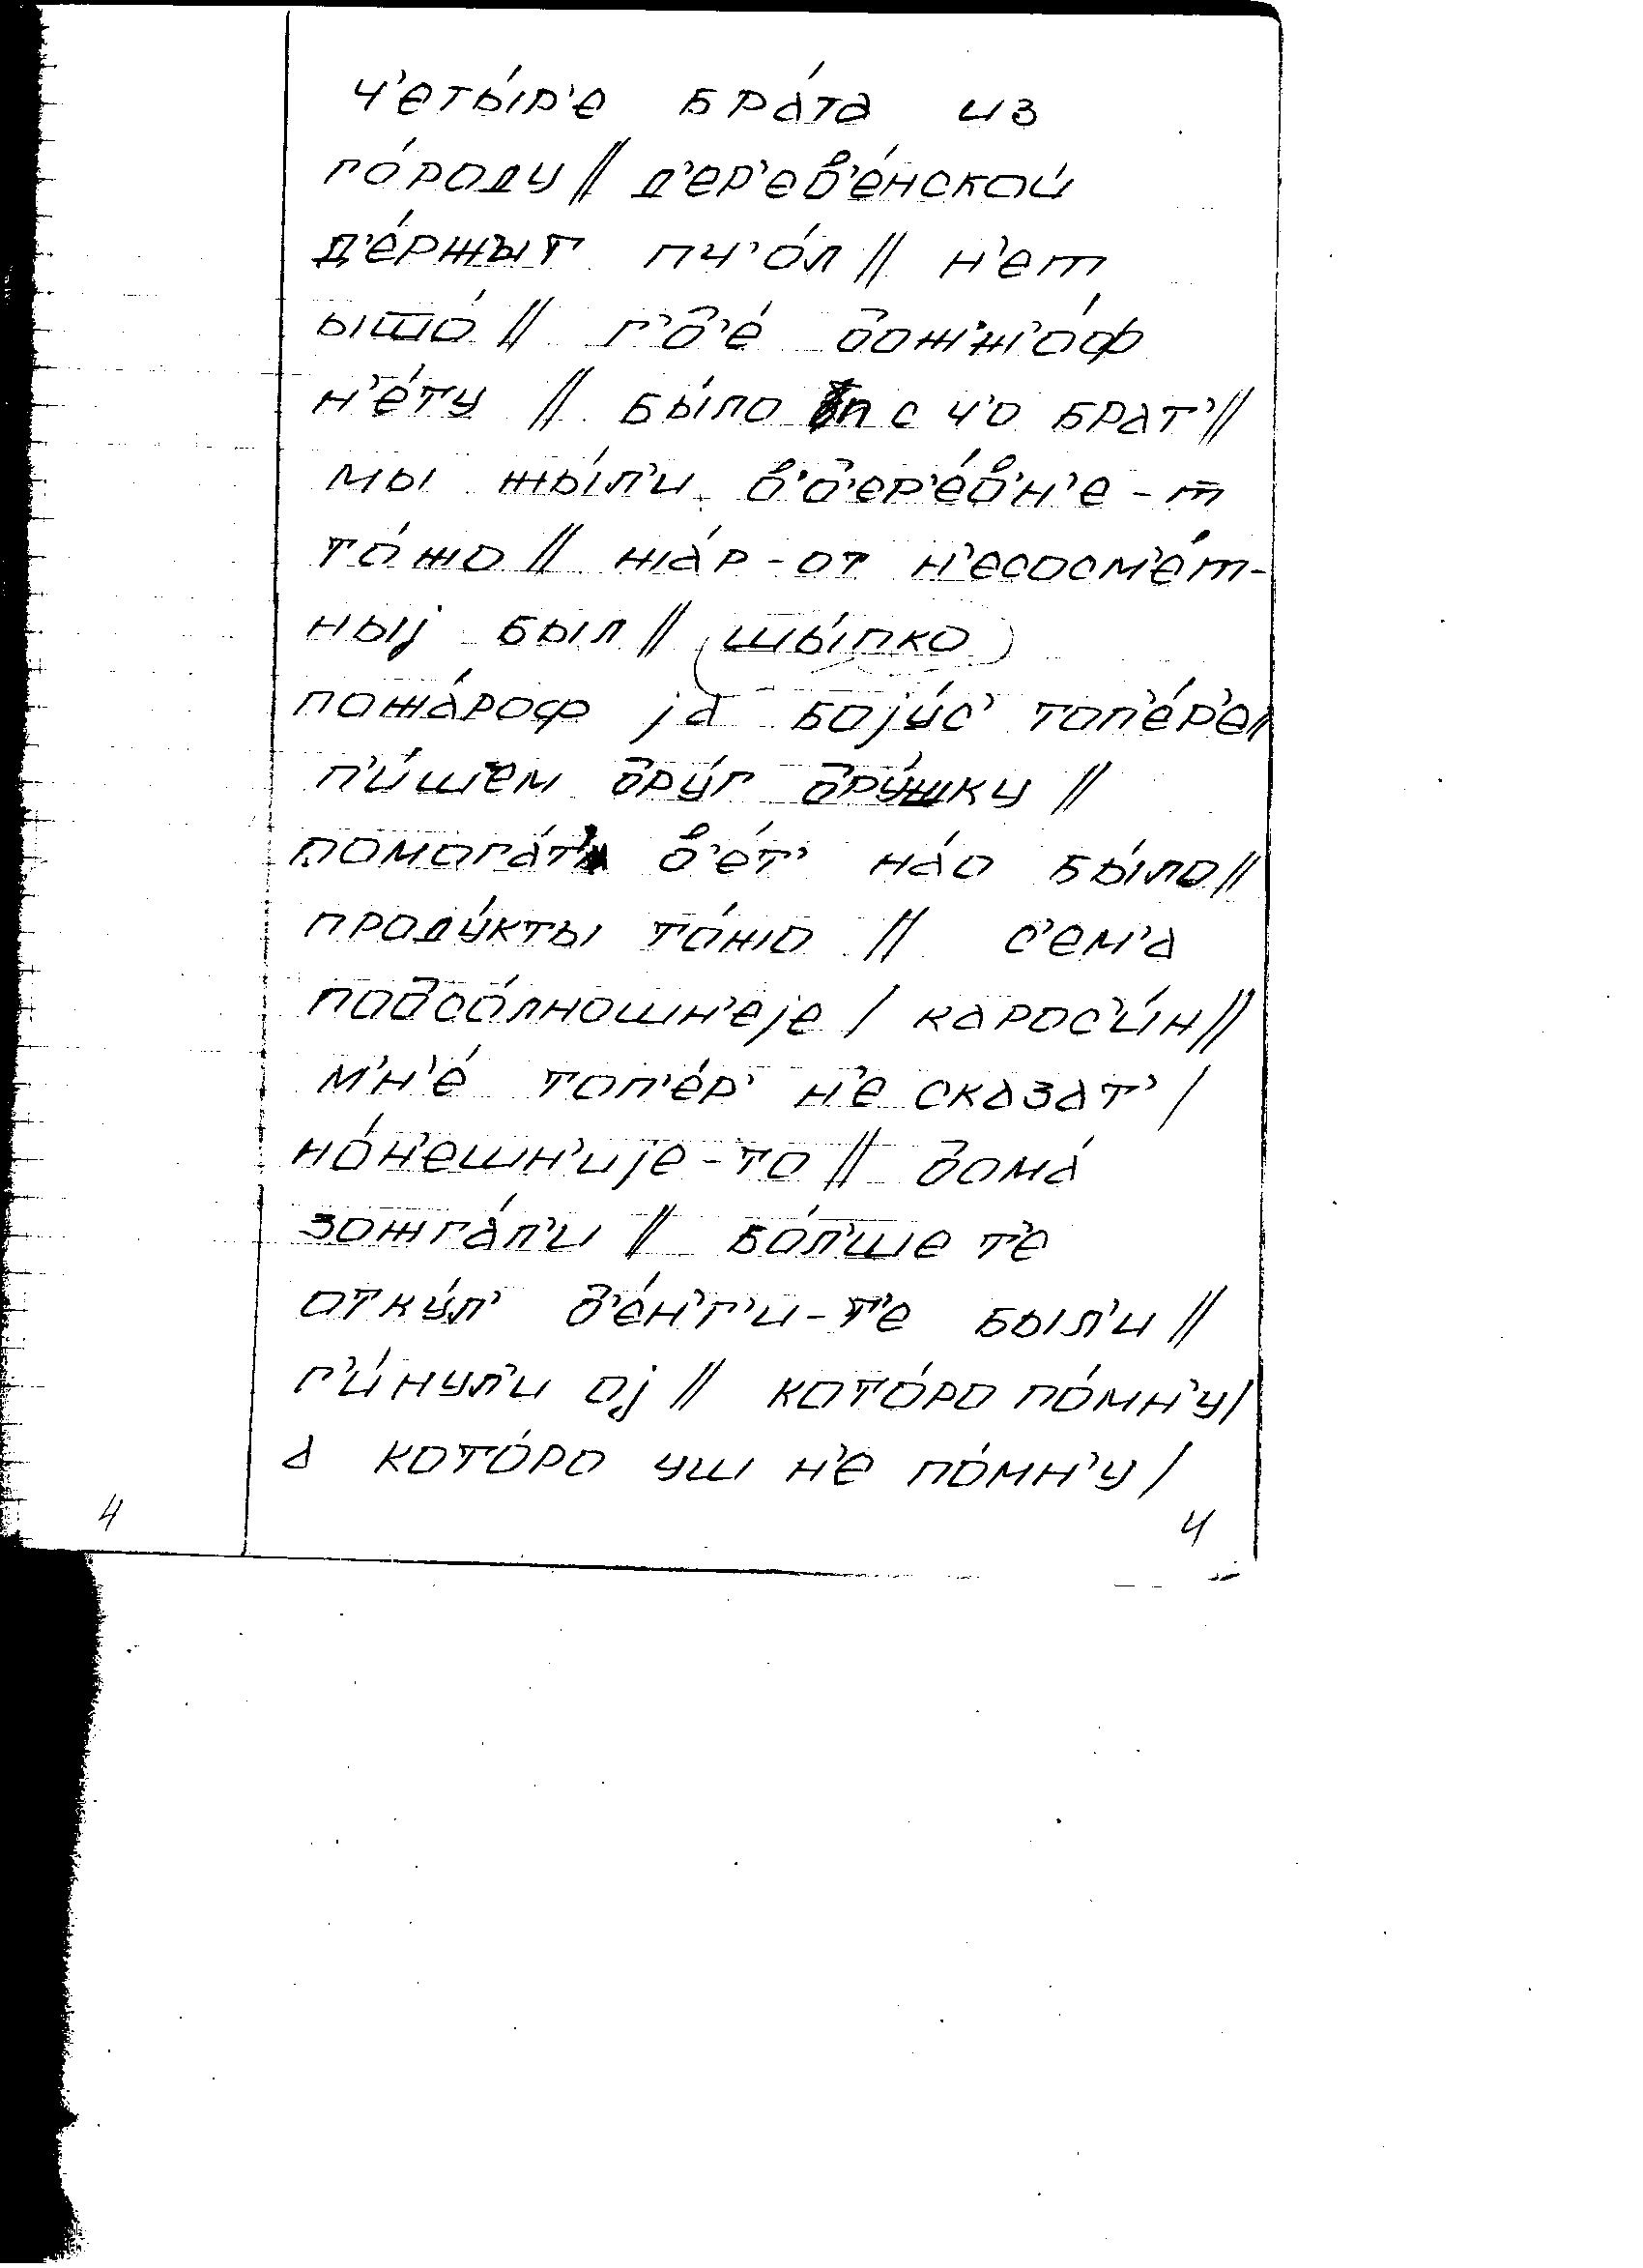 ч'еты́р'е бра́та из
го́роду // д'ер'ев'е́нской
д'е́ржыт пч'о́л // н'ет
ышо́ // г'д'е́ дож'ж'о́ф
н'е́ту // бы́ло п с ч'о брат' //
мы жы́л'и в'д'ер'е́в'н'е - т
то́жо // жа́р - от н'есосм'е́т-
ныј был // шы́пко
пожа́роф ја боју́с' топ'е́р'е //
п'и́шем дру́г дру́шку //
помога́т' в'е́т' на́о бы́ло //
проду́кты то́жо // с'ем'а
подсо́лношн'еје / карос'и́н //
м'н'е́ топ'е́р' н'е сказат' /
но́н'ешн'ије - то // дома́
зожга́л'и // бо́л'ше т'е
отку́л' д'е́н'г'и - т'е был'и //
г'и́нул'и ој // кото́ро по́мн'у /
а кото́ро уш н'е по́мн'у /
4 4